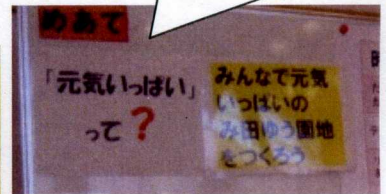 めあて
「元気いっぱい」
って?
みんなで元気
いっぱいの
み田ゆう園地
をつくろう